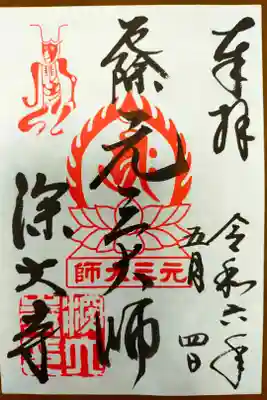 奉拝
令和六年
五月四日
厄除元三大師
師大三元
深大寺